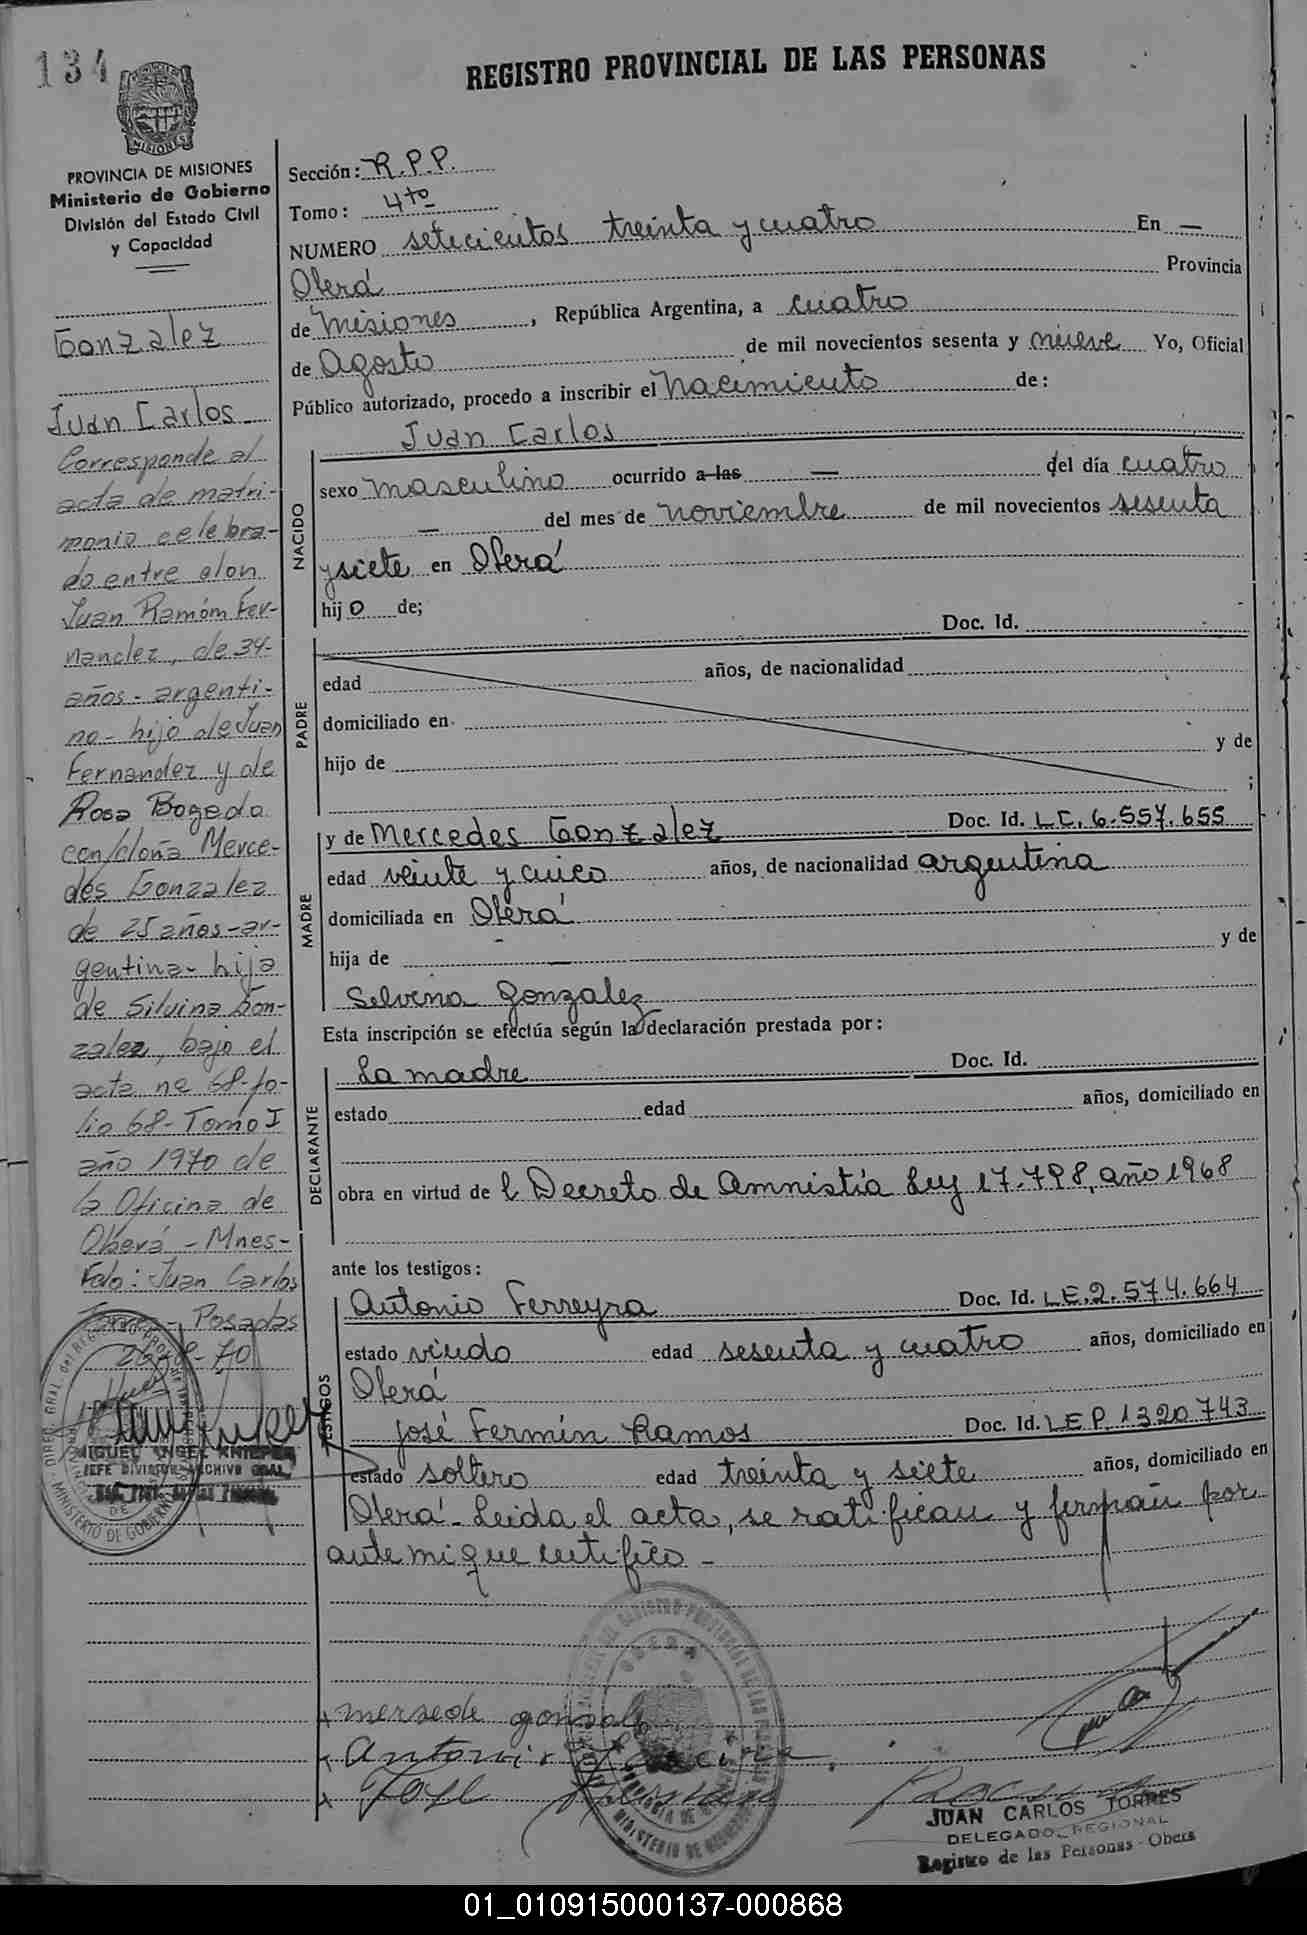 134
REGISTRO PROVINCIAL DE LAS PERSONAS
PROVINCIA DE MISIONES
Ministerio de Gobierno
División del Estado Civil
y Capacidad
Gonzalez
Juan Carlos
Corresponde al
acta de matri-
monio celebra-
do entre don
Juan Ramóm Fer-
nandez, de 34-
años - argenti-
no - hijo de Juan
Fernandez y de
Rosa Bogado
con/doña Merce-
des Gonzalez
de 25 años - ar-
gentina - hija
de Silvina Gon-
zalez, bajo el
acta nº 68- fo-
lio 68 - Tomo I
año 1970 de
la Oficina de
Oberá - Mnes-
Fdo: Juan Carlos
Posadas
MIGUEL ANGEL
JEFE DIVISION ARCHIVO GRAL.
Sección: R.P.P.
Tomo: 4to
NUMERO setecientos treinta y cuatro En —
Oberá Provincia
de Misiones, República Argentina, a cuatro
de Agosto de mil novecientos sesenta y nueve Yo, Oficial
Público autorizado, procedo a inscribir el Nacimiento de:
Juan Carlos
NACIDO
sexo masculino ocurrido a las — del día cuatro
— del mes de noviembre de mil novecientos sesenta
y siete en Oberá
hijo de;
PADRE
Doc. Id.
edad años, de nacionalidad
domiciliado en
hijo de y de
;
MADRE
y de Mercedes Gonzalez Doc. Id. LC. 6.557.655
edad veinte y cinco años, de nacionalidad argentina
domiciliada en Oberá
hija de — y de
Selvina Gonzalez
Esta inscripción se efectúa según la declaración prestada por:
DECLARANTE
La madre Doc. Id.
estado edad años, domiciliado en
obra en virtud de l Decreto de Amnistía Ley 17.798, año 1968
ante los testigos:
TESTIGOS
Antonio Ferreyra Doc. Id. LE. 2.574.664
estado viudo edad sesenta y cuatro años, domiciliado en
Oberá
José Fermín Ramos Doc. Id. LEP. 1320743
estado soltero edad treinta y siete años, domiciliado en
Oberá - Leida el acta, se ratifican y firman por
ante mi que certifico -
mersede gonzale
Antonio
Jose
JUAN CARLOS TORRES
DELEGADO REGIONAL
Registro de las Personas - Obera
01_010915000137-000868